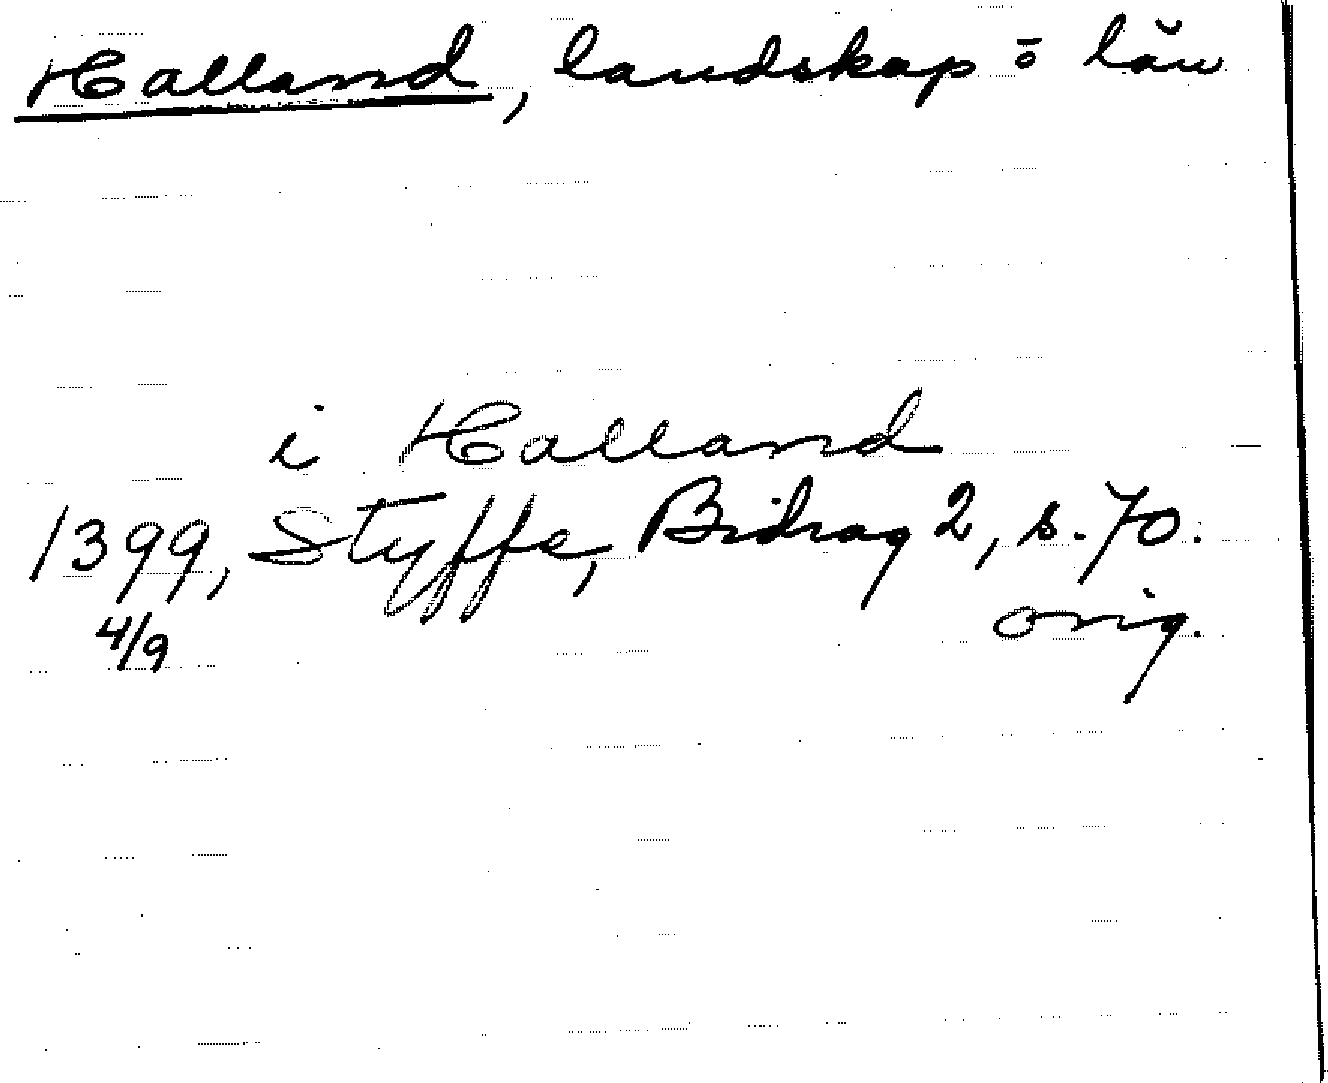 Halland, landskap o län
i Halland
1399, Styffe, Bidrag 2, s. 70.
4/9 orig.